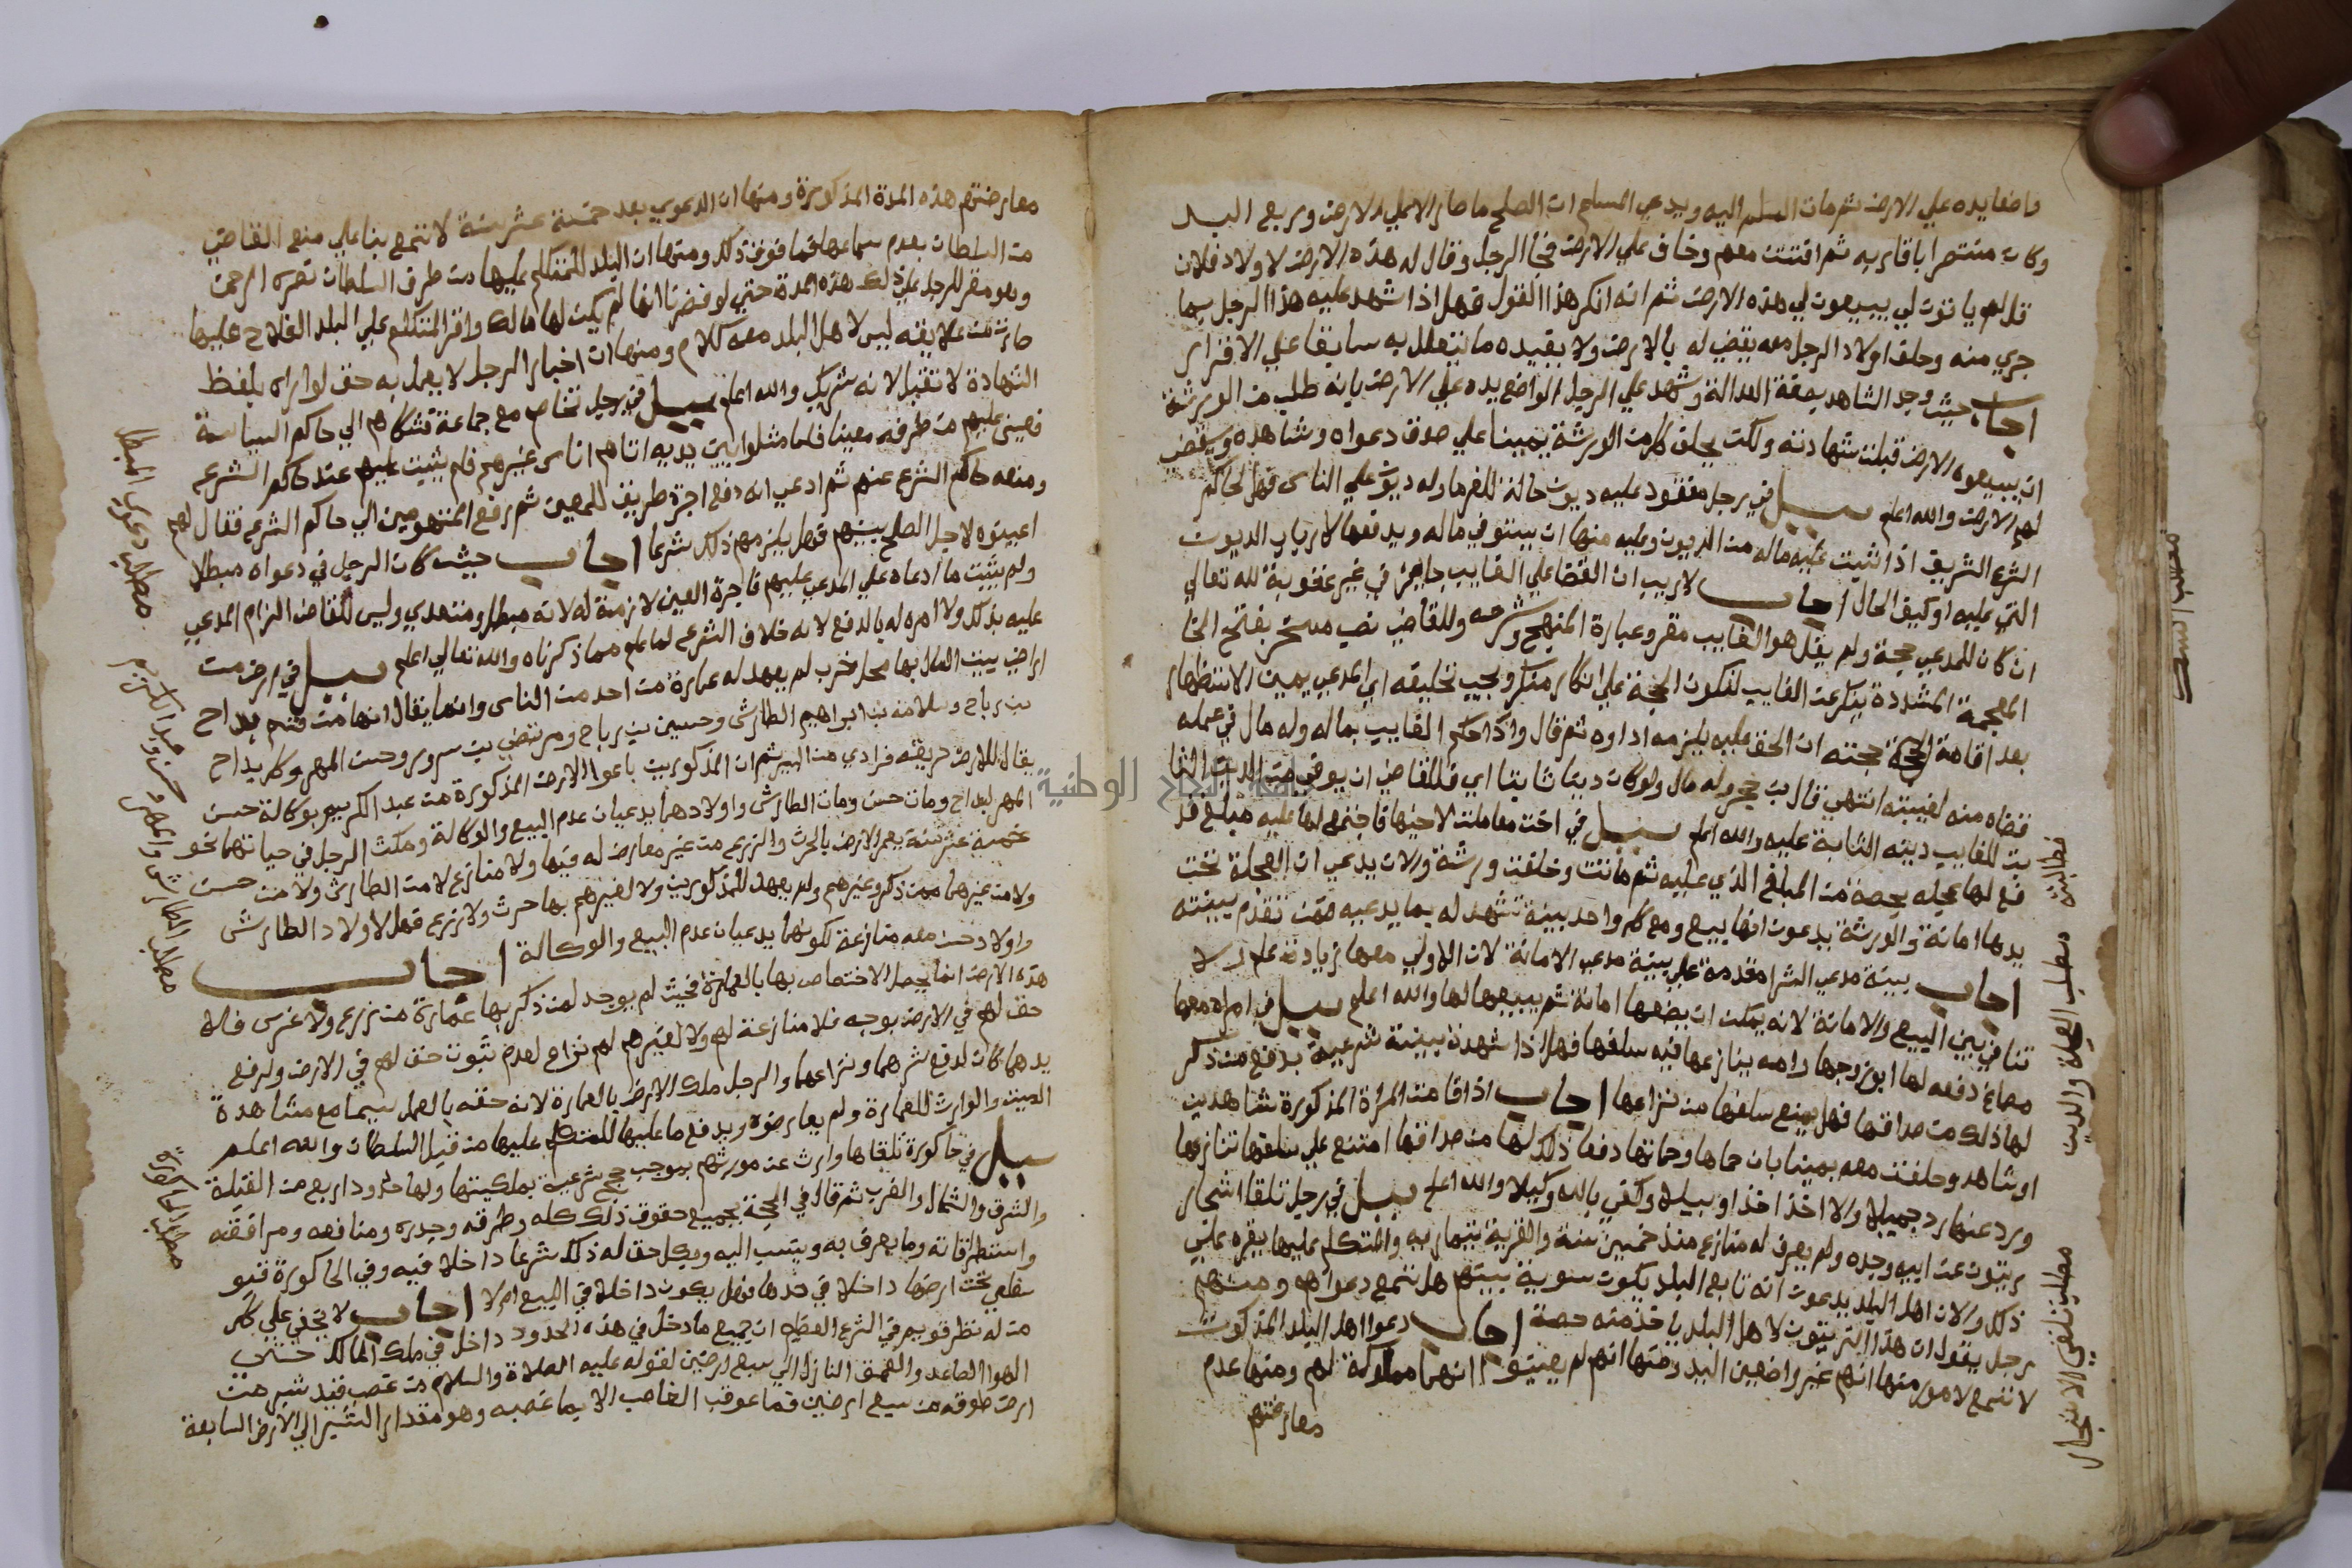 واضعا يده علي الارض ثم مات المسلم اليه ويدعي المسلم ان الصلح ما صار الا علي الارض وبربع اليد
وكان منتصرا باقاربه ثم افتتنت معهم وخاف علي الارض فجا الرجل وقال له هذه الارض لاولاد فلان
قل لهم ياتون لي يبيعون لي هذه الارض ثم انه انكر هذا القول فهل اذا شهد عليه هذا الرجل بما
جري منه وحلف اولاد الرجل معه يقضي له بالارض ولا يفيده ما يتعلل به سابقا علي الاقرار
اجاب حيث وجد الشاهد بصفة العدالة وشهد علي الرجل الواضع يده علي الارض بانه طلب من الورثة
ان يبيعوه الارض قبلت شهادته ولكن يحلف كل من الورثة يمينا علي صدق دعواه وشاهده ويقضي
لهم الارض والله اعلم سيل في رجل مفقود عليه ديون حالة للغرما وله ديون علي الناس فهل لحاكم
الشرع الشريف اذا ثبت عليه ماله من الديون وعليه منها ان يستوفي ماله ويدفعها لارباب الديون
التي عليه او كيف الحال اجاب لا ريب ان القضا علي الغايب جايز في غير عقوبة لله تعالي
ان كان للمدعي حجة ولم يقل هو الغايب مقر وعبارة المنهج وشرحه وللقاضي نصب مسخر بفتح الخا
المعجمة المشددة ينكر عن الغايب لتكون الحجة علي انكار منكر ويجب تحليفه اي المدعي يمين الاستظهار
بعد اقامة الحجة حجته ان الحق عليه يلزمه اداوه ثم قال واذا حكم الغايب بماله وله مال في عمله
قضاه منه لغيبته انتهي قال بن حجر وله مال ولو كان دينا ثابتا اي فللقاضي ان يوفي من الدين الثا
بت للغايب دينه الثابة عليه والله اعلم سيل في اخت معاملت لاخيها فاجتمع لها عليه مبلغ فد
فع لها عجله بحصة من المبلغ الذي عليه ثم ماتت وخلفت ورثة والان يدعي ان العجلة تحت
يدها امانة والورثة يدعون انها ببيع ومع كل واحد بينة تشهد له بما يدعيه فمن تقدم بينته
اجاب بينة مدعي الشرا مقدمة علي بينة مدعي الامانة لان الاولي معها زيادة علم اذ لا
تنافي بين البيع والامانة لانه يمكن ان يضعها امانة ثم يبيعها لها والله اعلم سيل في امراة معها
مصاغ دفعه لها ابو زوجها وامه ينازعها فيه سلفها فهل اذا شهدت بينة شرعية بدفع من ذكر
لها ذلك من صداقها فهل يمنع سلفها من نزاعها اجاب اذا اقامت المراة المذكورة شاهدين
او شاهد وحلفت معه يمينا بان حماها وحماتها دفعا ذلك لها من صداقها امتنع علي سلفها تنازعها
ورد عنها ردا جميلا والا اخذ اخذا وبيلا وكفي بالله وكيلا والله اعلم سيل في رجل تلقا اشجار
زيتون عن ابيه وجده ولم يعرف له منازع منذ خمسين سنة والقرية تيمارية والمتكلم عليها يقره علي
ذلك والان اهل البلد يدعون انه تابع البلد يكون سوية بينهم هل تسمع دعواهم ومنهم
رجل يقول ان هذا الزيتون لاهل البلد ياخذ منه حصة اجاب دعوا اهل البلد المذكورين
لا تسمع لامور منها انهم غير واضعين اليد ومنها انهم لم يعينوا انها مملوكة لهم ومنها عدم
معارضتهم
مطلب العجلة والدين
مطلب تلقي الاشجار
معارضتهم هذه المدة المذكورة ومنها ان الدعوي بعد خمسة عشر سنة لا تسمع بنا علي منع القاضي
من السلطان بعدم سماعها فما فوق ذلك ومنها ان البلد للمتكلم عليها من طرف السلطان نصره الرحمن
وهو مقر للرجل علي ذلك هذه المدة حتي لو فرضنا انها لم يكن لها مالك واقر المتكلم علي البلد الفلاح عليها
صارت من علايقه ليس لاهل البلد معه كلام ومنها ان اخبار الرجل لا يعمل به حتي لو اراد بلفظ
الشهادة لا تقبل لانه شريك والله اعلم سيل في رجل تخاصم مع جماعة فشكاهم الي حاكم السياسة
فعين عليهم من طرفه معينا فلما مثلوا بين يديه اتاهم اناس غيرهم فلم يثبت عليهم عند حاكم الشرع
ومنعه حاكم الشرع عنهم ثم ادعي انه دفع اجرة طريق للمعين ثم رفع المتهومين الي حاكم الشرع فقال لهم
اعينوه لاجل الصلح بينهم فهل يلزمهم ذلك شرعا اجاب حيث كان الرجل في دعواه مبطلا
ولم يثبت ما ادعاه علي المدعي عليهم فاجرة المعين لازمة له لانه مبطل ومتعدي وليس للقاضي الزام المدعي
عليه بذلك ولا امره له بالدفع لانه خلاف الشرع لما علم مما ذكرناه والله تعالي اعلم سيل في ارض من
اراضي بيت المال بها محل خرب لم يعهد له عمارة من احد من الناس وانما يقال انها من قديم بيد اح
بن رباح وسلامه بن ابراهيم الطارشي وحسين بن رباح ومرتضي بن سرور وحسن المهر وكل بيد اح
يقال للارض حريقته فرادي من البير ثم ان المذكورين باعوا الارض المذكورة من عبد الكريم بوكالة حسن
المهر ليداح ومات حسن ومات الطارشي واولادهما يدعيان عدم البيع والوكالة ومكث الرجل في حياتهما نحو
خمسة عشر سنة يعمر الارض بالحرث والزرع من غير معارض له فيها ولا منازع لا من الطارشي ولا من حسن
ولا من غيرهما ممن ذكر وغيرهم ولم يعهد للمذكورين ولا لغيرهم بها حرث ولا زرع فهل لاولاد الطارشي
واولاد حسن معه منازعة لكونهما يدعيان عدم البيع والوكالة اجاب
هذه الارض انما يحصل الاختصاص بها بالعمارة فحيث لم يوجد لمن ذكر بها عمارة من زرع ولا غرس فلا
حق لهم في الارض بوجه فلا منازعة لهم ولا لغيرهم لهم نزاع لعدم ثبوت حق لهم في الارض ولرفع
يدهما كان لدفع شرهما ونزاعهما والرجل ملك الارض بالعمارة لانه حقه بالعمل سيما مع مشاهدة
الميت والوارث للعمارة ولم يعارضوه ويدفع ما عليها للمتكلم عليها من قبل السلطان والله اعلم
سيل في حاكورة تلقاها وارث عن مورثهم بموجب حجج شرعية بملكيتها ولها حدود اربع من القبلة
والشرق والشمال والغرب ثم قال في الحجة بجميع حقوق ذلك كله وطرقه وجدره ومنافعه ومرافقه
واستطراقاته وما يعرف به وينسب اليه وبكل حق له ذلك شرعا داخلا فيه وفي الحاكورة قبو
سفلي تحت ارضها داخلا في حدها فهل يكون داخلا في البيع ام لا اجاب لا يخفي علي كل
من له نظر قويم في الشرع العظيم ان جميع ما دخل في هذه الحدود داخل في ملك المالك حتي
الهوا الصاعد والعمق النازل الي سبع ارضين لقوله عليه الصلاة والسلام من غصب قيد شبر من
ارض طوقه من سبع ارضين فما عوقب الغاصب الا بما غصبه وهو مقدار الشبر الي الارض السابعة
مطلب دعوي المبطل
مطلب الطارشي والمهر وحسن وعبد الكريم
مطلب الحاكورة
جامعة النجاح الوطنية